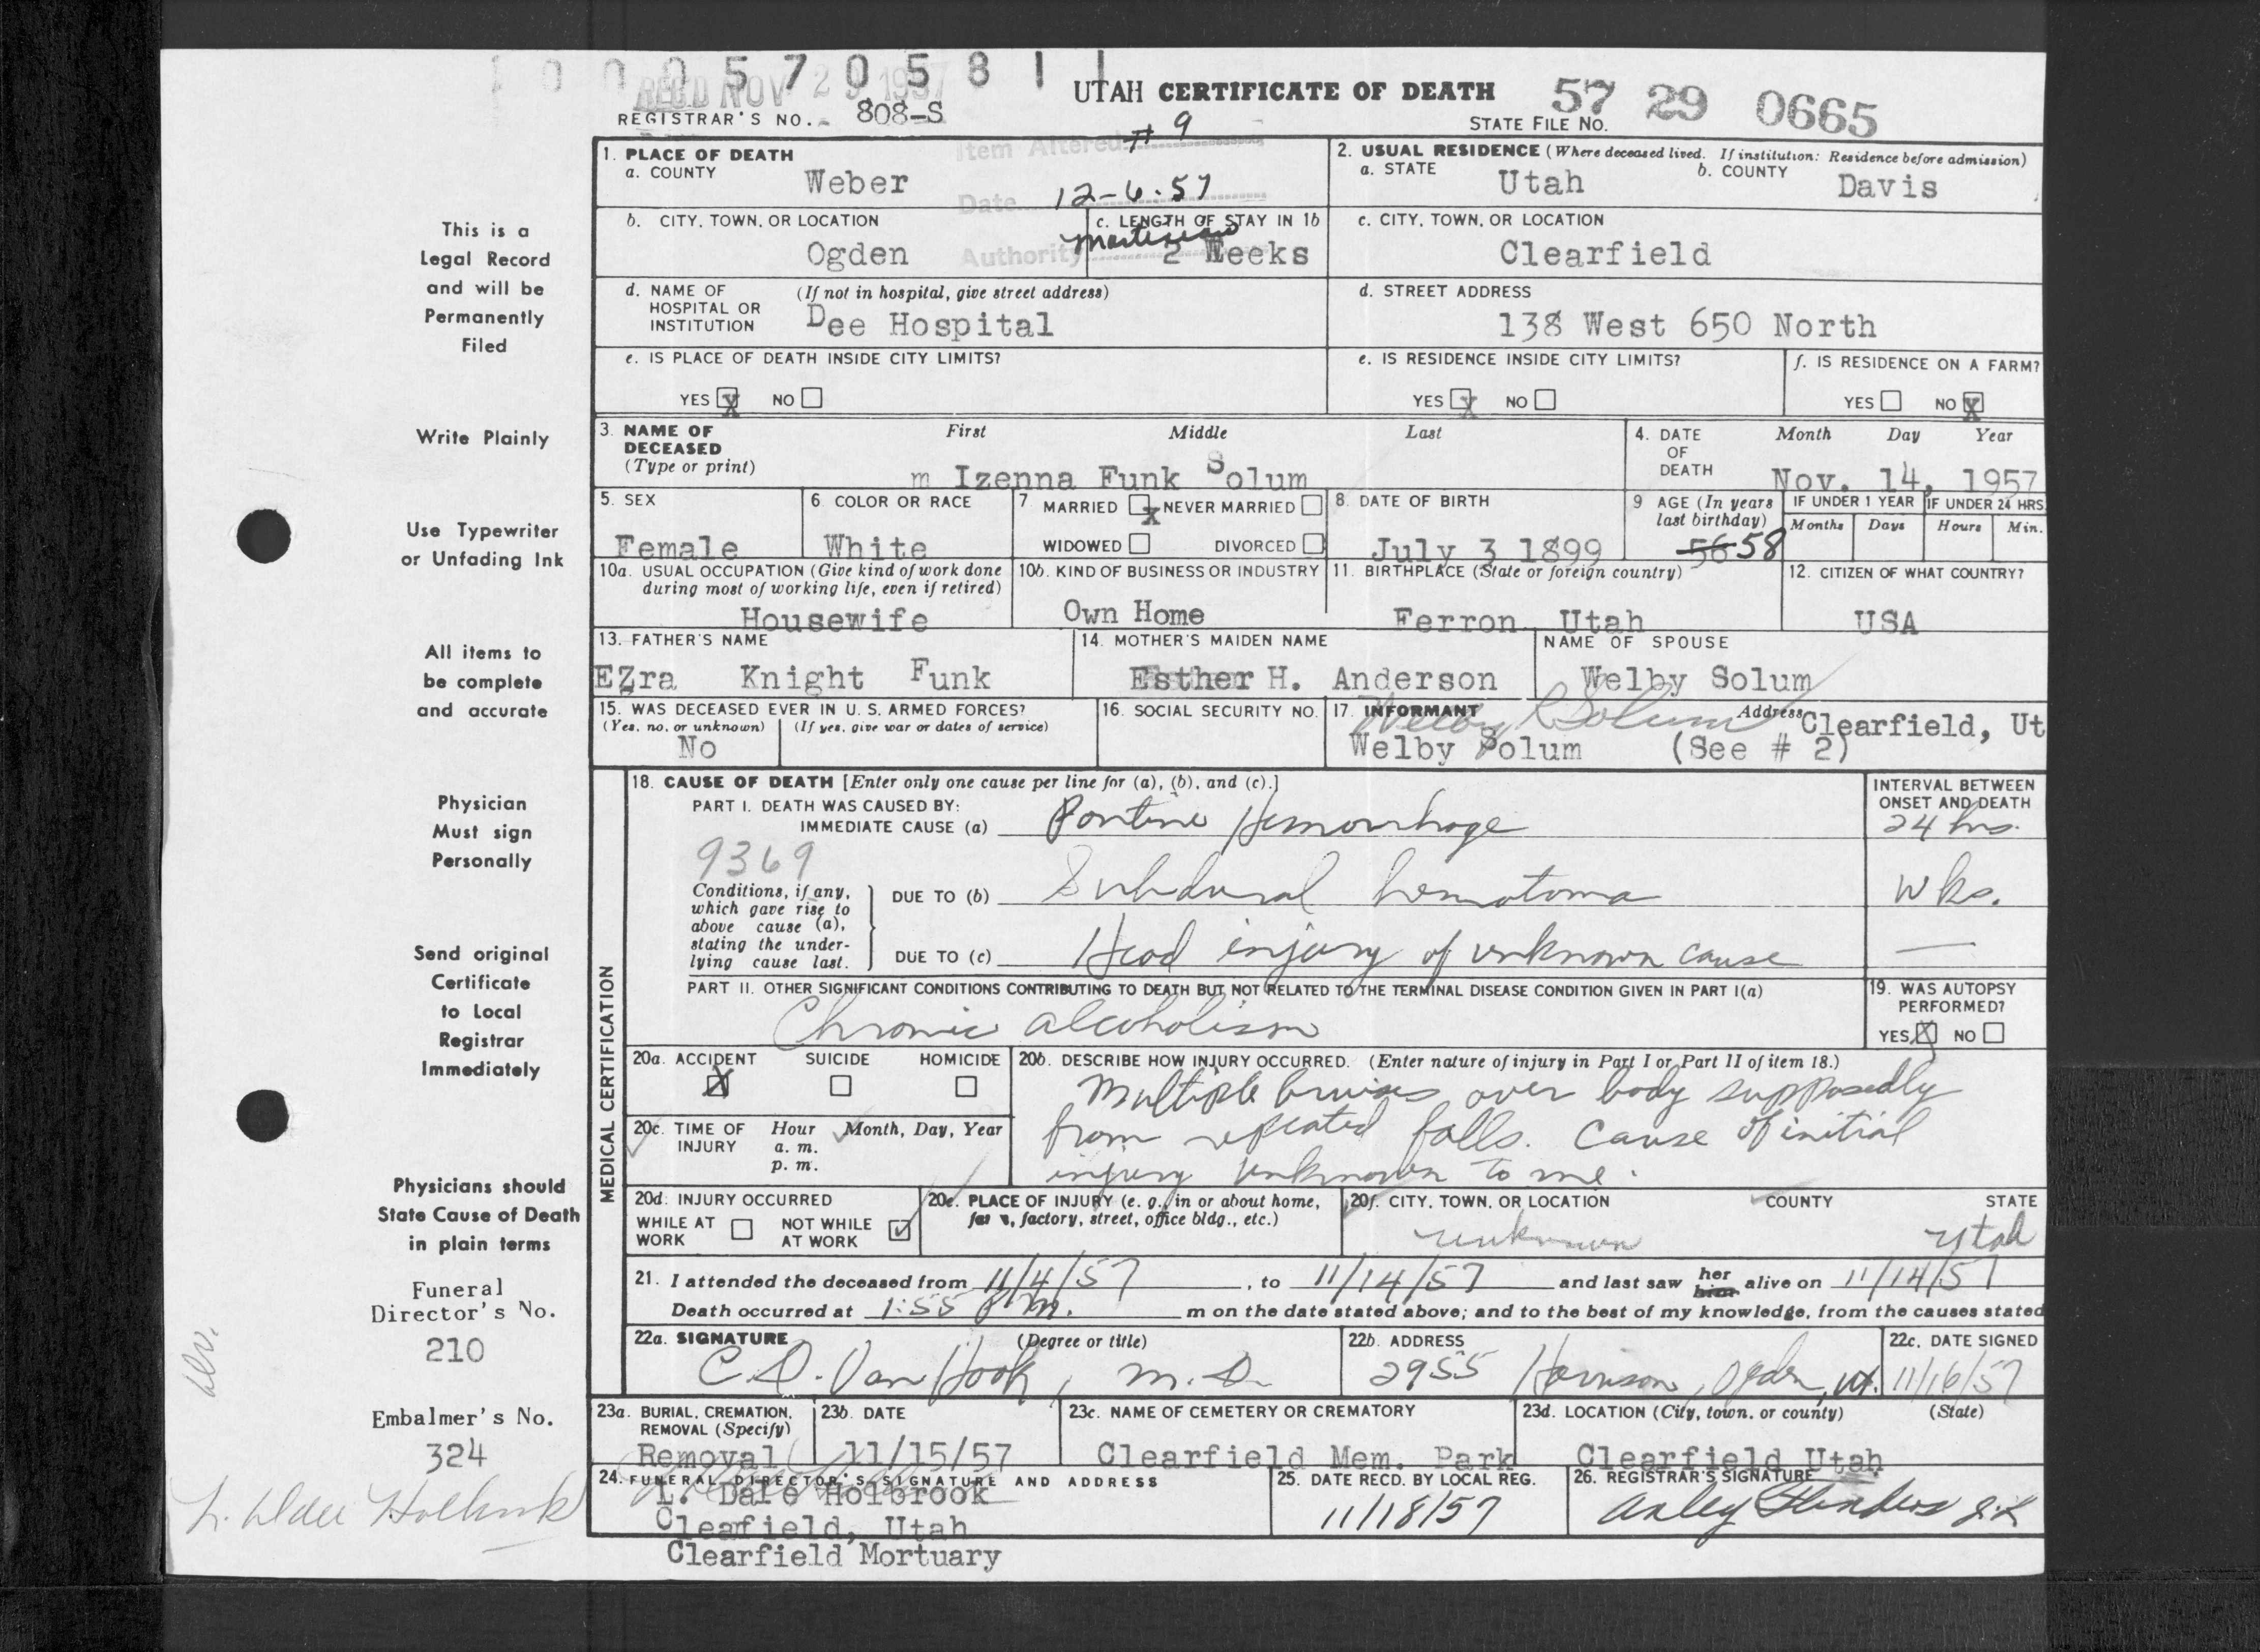 0 0 0 5 7 0 5 8 1 1
REC'D NOV 29 1957
UTAH CERTIFICATE OF DEATH
57 29 0665
REGISTRAR'S NO. 808-S
STATE FILE NO.
Item Altered # 9
Date 12-6-57
Authority
1. PLACE OF DEATH
a. COUNTY
Weber
2. USUAL RESIDENCE (Where deceased lived. If institution: Residence before admission)
a. STATE Utah b. COUNTY Davis
b. CITY, TOWN, OR LOCATION
Ogden
c. LENGTH OF STAY IN 1b
2 Weeks
c. CITY, TOWN, OR LOCATION
Clearfield
d. NAME OF HOSPITAL OR INSTITUTION (If not in hospital, give street address)
Dee Hospital
d. STREET ADDRESS
138 West 650 North
e. IS PLACE OF DEATH INSIDE CITY LIMITS?
YES X NO
e. IS RESIDENCE INSIDE CITY LIMITS?
YES X NO
f. IS RESIDENCE ON A FARM?
YES NO X
3. NAME OF DECEASED (Type or print)
First Middle Last
m Izenna Funk Solum
4. DATE OF DEATH
Month Day Year
Nov. 14, 1957
5. SEX
Female
6 COLOR OR RACE
White
7 MARRIED X NEVER MARRIED
WIDOWED DIVORCED
8. DATE OF BIRTH
July 3 1899
9 AGE (In years last birthday)
56 58
IF UNDER 1 YEAR IF UNDER 24 HRS
Months Days Hours Min.
10a. USUAL OCCUPATION (Give kind of work done during most of working life, even if retired)
Housewife
10b. KIND OF BUSINESS OR INDUSTRY
Own Home
11. BIRTHPLACE (State or foreign country)
Ferron Utah
12. CITIZEN OF WHAT COUNTRY?
USA
13. FATHER'S NAME
EZra Knight Funk
14. MOTHER'S MAIDEN NAME
Esther H. Anderson
NAME OF SPOUSE
Welby Solum
15. WAS DECEASED EVER IN U. S. ARMED FORCES?
(Yes, no, or unknown) (If yes, give war or dates of service)
No
16. SOCIAL SECURITY NO.
17. INFORMANT Address
Welby Solum
Clearfield, Ut
Welby Solum (See # 2)
MEDICAL CERTIFICATION
18. CAUSE OF DEATH [Enter only one cause per line for (a), (b), and (c).]
INTERVAL BETWEEN ONSET AND DEATH
PART I. DEATH WAS CAUSED BY:
IMMEDIATE CAUSE (a) Pontine Hemorrhage
24 hrs.
9369
Conditions, if any, which gave rise to above cause (a), stating the underlying cause last.
DUE TO (b) Subdural hematoma
wks.
DUE TO (c) Head injury of unknown cause
—
PART II. OTHER SIGNIFICANT CONDITIONS CONTRIBUTING TO DEATH BUT NOT RELATED TO THE TERMINAL DISEASE CONDITION GIVEN IN PART I(a)
Chronic alcoholism
19. WAS AUTOPSY PERFORMED?
YES X NO
20a. ACCIDENT SUICIDE HOMICIDE
X
20b. DESCRIBE HOW INJURY OCCURRED. (Enter nature of injury in Part I or Part II of item 18.)
Multiple bruises over body supposedly
from repeated falls. Cause of initial
injury unknown to me.
20c. TIME OF INJURY Hour Month, Day, Year
a. m.
p. m.
20d. INJURY OCCURRED
WHILE AT WORK NOT WHILE AT WORK ✓
20e. PLACE OF INJURY (e. g., in or about home, farm, factory, street, office bldg., etc.)
20f. CITY, TOWN, OR LOCATION COUNTY STATE
unknown Utah
21. I attended the deceased from 11/4/57, to 11/14/57 and last saw her him alive on 11/14/57
Death occurred at 1:55 P.m. m on the date stated above; and to the best of my knowledge, from the causes stated
22a. SIGNATURE (Degree or title)
C.D. Van Hook, M.D.
22b. ADDRESS
2955 Harrison, Ogden, Ut.
22c. DATE SIGNED
11/16/57
23a. BURIAL, CREMATION, REMOVAL (Specify)
Removal
23b. DATE
11/15/57
23c. NAME OF CEMETERY OR CREMATORY
Clearfield Mem. Park
23d. LOCATION (City, town, or county) (State)
Clearfield Utah
24. FUNERAL DIRECTOR'S SIGNATURE AND ADDRESS
L. Dale Holbrook
Clearfield, Utah
Clearfield Mortuary
25. DATE RECD. BY LOCAL REG.
11/18/57
26. REGISTRAR'S SIGNATURE
This is a
Legal Record
and will be
Permanently
Filed
Write Plainly
Use Typewriter
or Unfading Ink
All items to
be complete
and accurate
Physician
Must sign
Personally
Send original
Certificate
to Local
Registrar
Immediately
Physicians should
State Cause of Death
in plain terms
Funeral
Director's No.
210
Embalmer's No.
324
L. Dale Holbrook